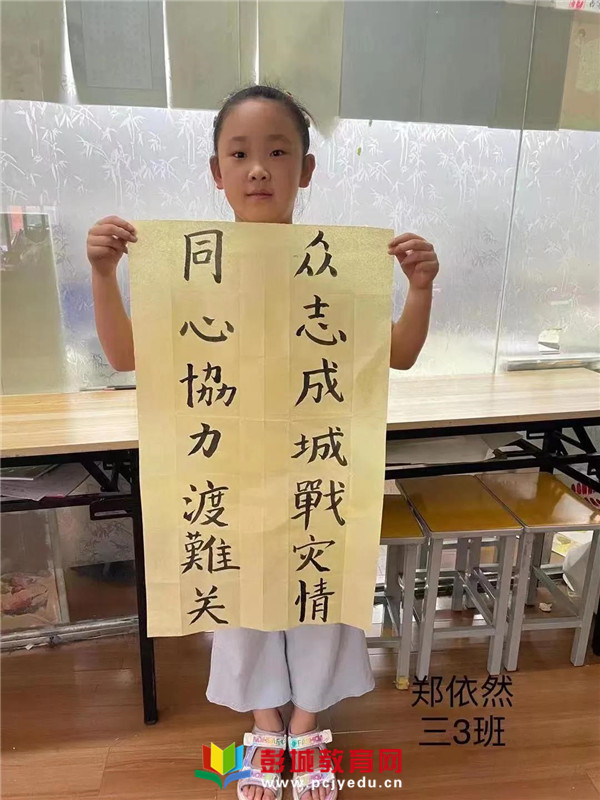 众志成城戰灾情
同心協力渡難关
郑依然
三3班
彭城教育网
www.pcjyedu.cn